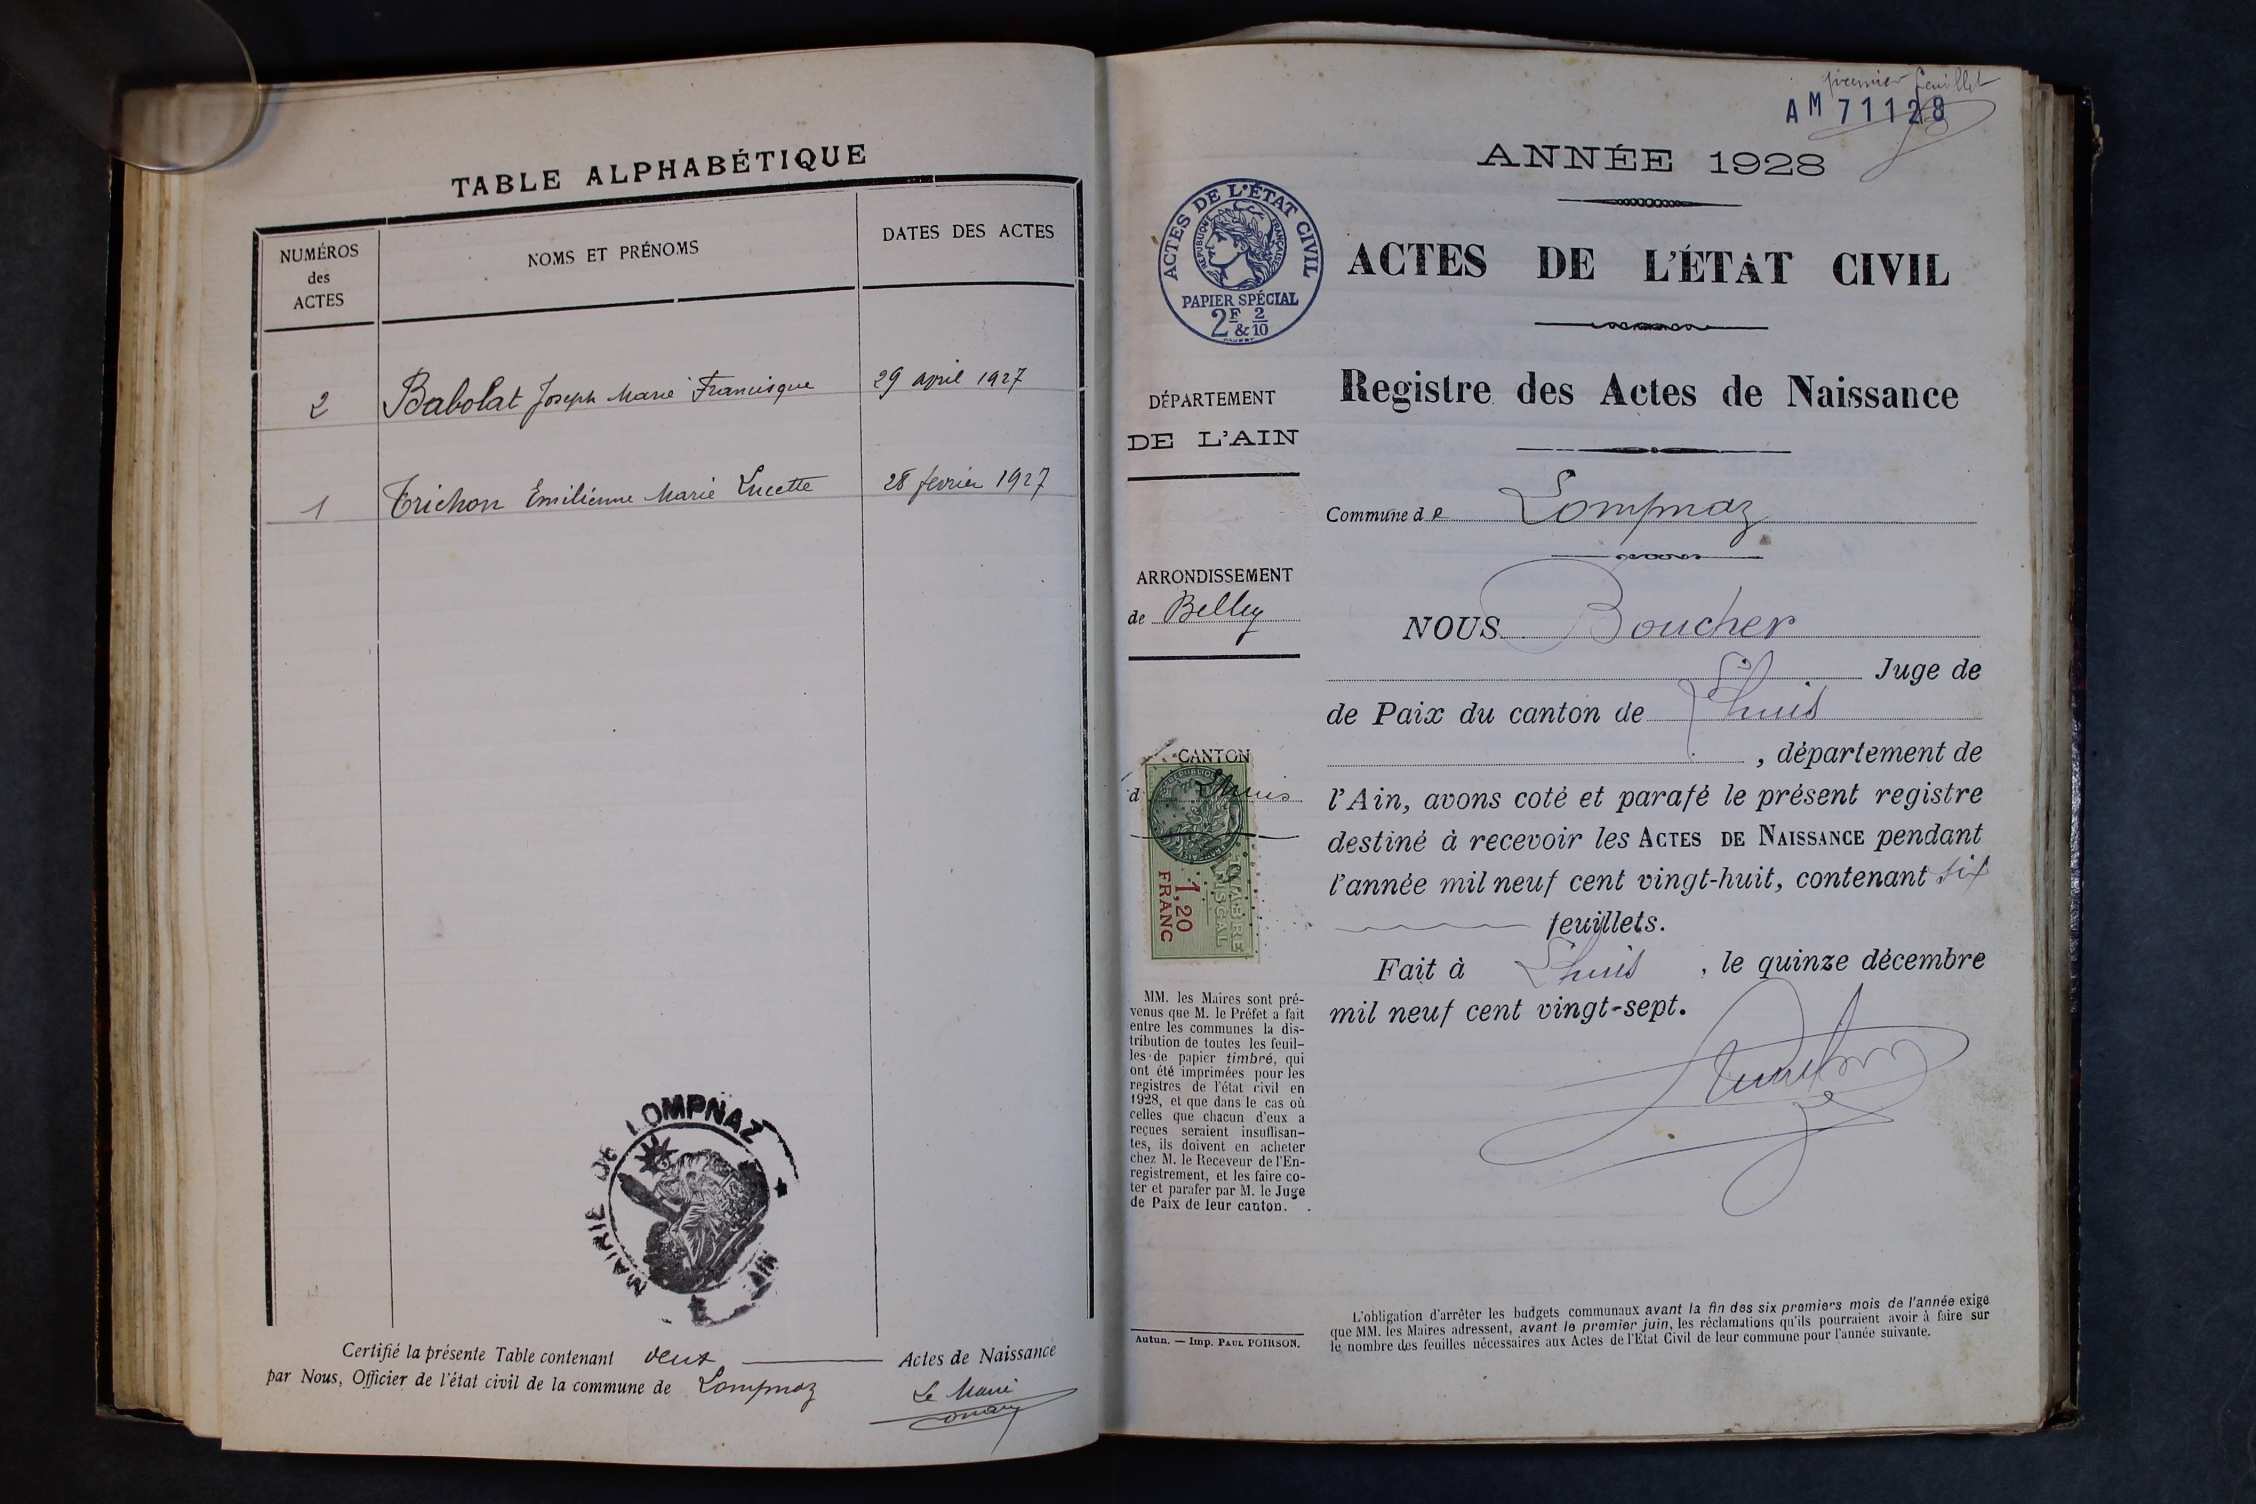 TABLE ALPHABÉTIQUE
NUMÉROS
des
ACTES
NOMS ET PRÉNOMS
DATES DES ACTES
2 Babolat Joseph Marie Francisque 29 april 1927
1 Trichon Emilienne Marie Lucette 28 février 1927
MAIRIE DE LOMPNAZ
AIN
Certifié la présente Table contenant deux Actes de Naissance
par Nous, Officier de l'état civil de la commune de Lompnaz
Le Maire
premier feuillet
AM 71128
ANNÉE 1928
ACTES DE L'ÉTAT CIVIL
RÉPUBLIQUE FRANÇAISE
PAPIER SPÉCIAL
2F & 2/10
ACTES DE L'ÉTAT CIVIL
Registre des Actes de Naissance
DÉPARTEMENT
DE L'AIN
Commune de Lompnaz
ARRONDISSEMENT
de Belley
NOUS Boucher
Juge de
de Paix du canton de Lhuis
, département de
l'Ain, avons coté et parafé le présent registre
destiné à recevoir les ACTES DE NAISSANCE pendant
l'année mil neuf cent vingt-huit, contenant six
feuillets.
Fait à Lhuis, le quinze décembre
mil neuf cent vingt-sept.
CANTON
d Lhuis
TIMBRE
FISCAL
1,20
FRANC
MM. les Maires sont pré-
venus que M. le Préfet a fait
entre les communes la dis-
tribution de toutes les feuil-
les de papier timbré, qui
ont été imprimées pour les
registres de l'état civil en
1928, et que dans le cas où
celles que chacun d'eux a
reçues seraient insuffisan-
tes, ils doivent en acheter
chez M. le Receveur de l'En-
registrement, et les faire co-
ter et parafer par M. le Juge
de Paix de leur canton.
Autun. — Imp. PAUL POIRSON.
L'obligation d'arrêter les budgets communaux avant la fin des six premiers mois de l'année exige
que MM. les Maires adressent, avant le premier juin, les réclamations qu'ils pourraient avoir à faire sur
le nombre des feuilles nécessaires aux Actes de l'Etat Civil de leur commune pour l'année suivante.